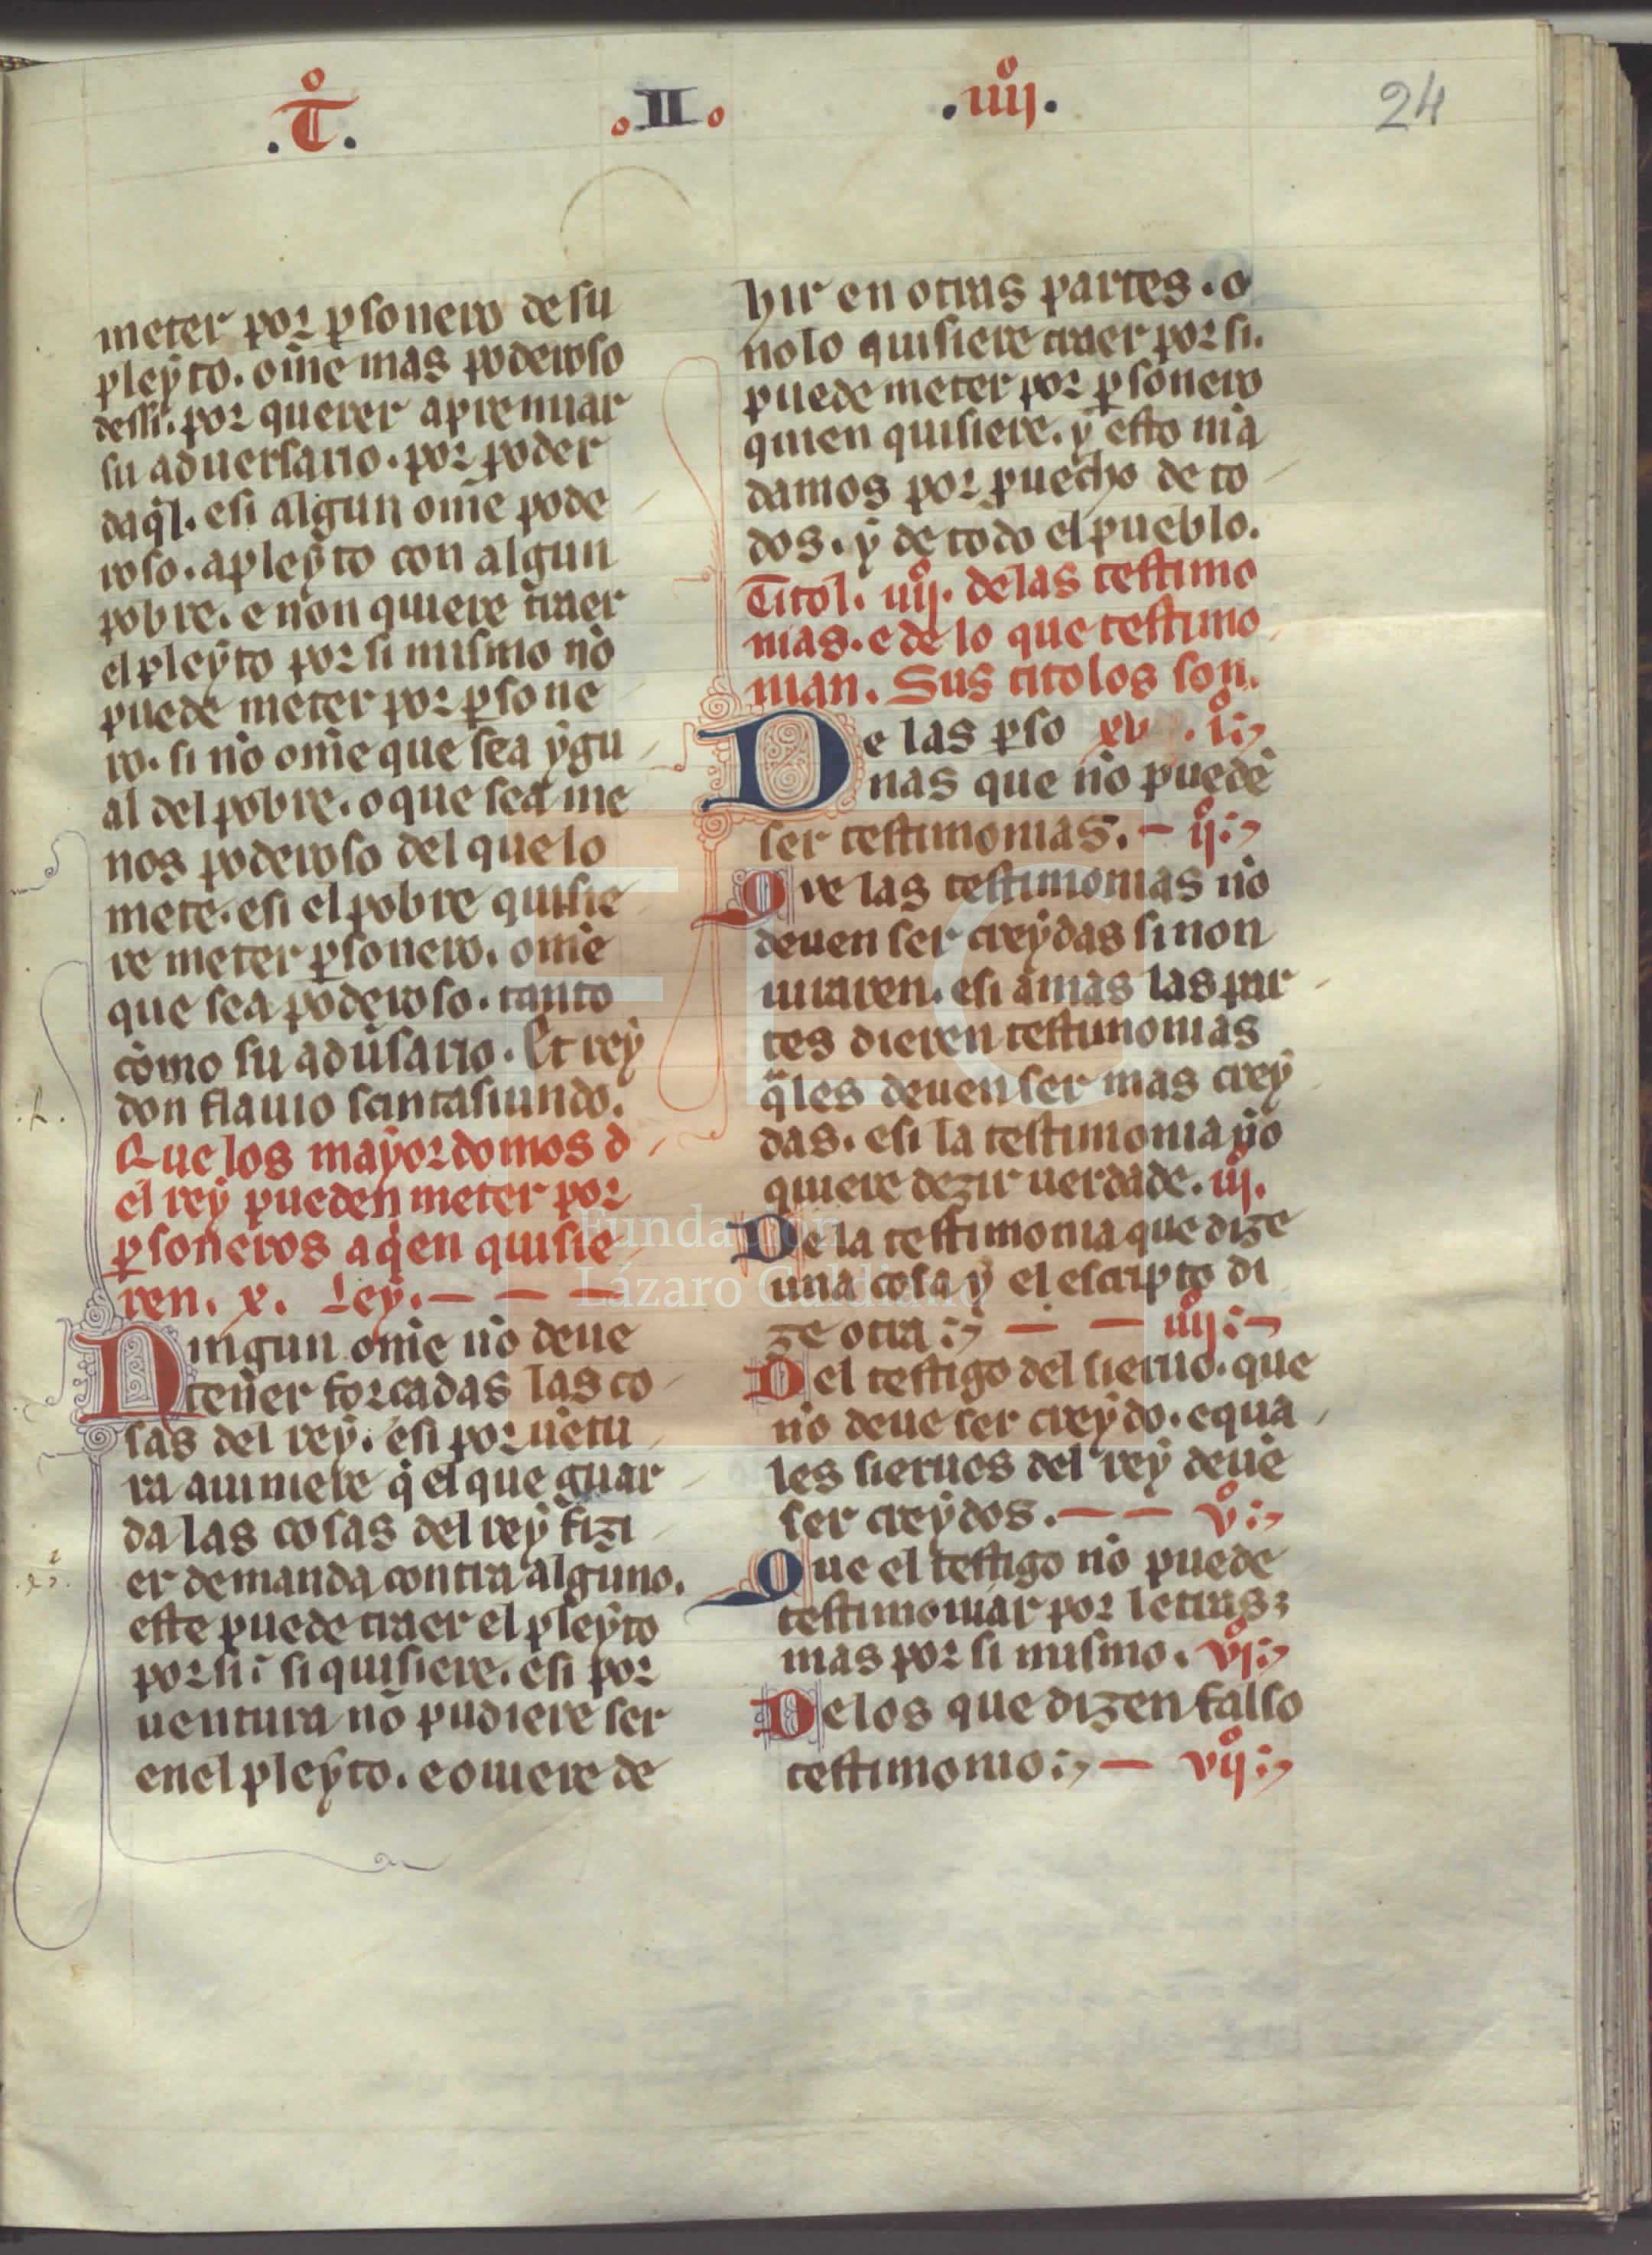 .T͛o. .II. .iiijͦ. 24
meter por ꝑsonero de su
pleẏto. om̃e mas poderoso
dessi. por querer apremiar
su aduersario. por poder
daq̃l. esi algun om̃e pode
roso. a pleẏto con algun
pobre. e non quiere traer
el pleẏto por si mismo nõ
puede meter por ꝑsone
ro. si nõ om̃e que sea ẏgu
al del pobre. o que sea me
nos poderoso del que lo
mete. esi el pobre quisie
re meter ꝑsonero. om̃e
que sea poderoso. tanto
como su adũsario. Et reẏ
don flauio scintasiundo.
Que los maẏordomos d
el reẏ pueden meter por
ꝑsoneros a qͥen quisie
ren. x. Leẏ.
Ningun om̃e nõ deue
tener forcadas las co
sas del reẏ. esi por uẽtu
ra auiniere q̃ el que guar
da las cosas del reẏ fizi
er demanda contra alguno.
este puede traer el pleẏto
por si: si quisiere. esi por
uentura nõ pudiere ser
enel pleẏto. e ouiere de
hir en otras partes. o
nolo quisiere traer por si.
puede meter por ꝑsonero
quien quisiere. ẏ esto mã
damos por ꝓuecho de to
dos. ẏ de todo el pueblo.
Titol. iiijͦ. delas testimo
nias. e de lo que testimo
nian. Sus titolos son.
De las ꝑso iͦ
nas que nõ puedẽ
ser testimonias. ijͦ
Que las testimonias nõ
deuen ser creẏdas si non
iuraren. esi amas las par
tes dieren testimonias
q̃les deuen ser mas creẏ
das. esi la testimonia ño
quiere dezir uerdade. iijͦ.
De la testimonia que dize
una cosa ẏ el escripto di
ze otra iiijͦ
Del testigo del sieruo. que
nõ deue ser creẏdo. e qua
les sieruos del reẏ deuẽ
ser creẏdos. vͦ
Que el testigo nõ puede
testimoniar por letras;
mas por si mismo. vjͦ
Delos que dizen falso
testimonio vijͦ
Fundación
Lázaro Galdiano
FLG